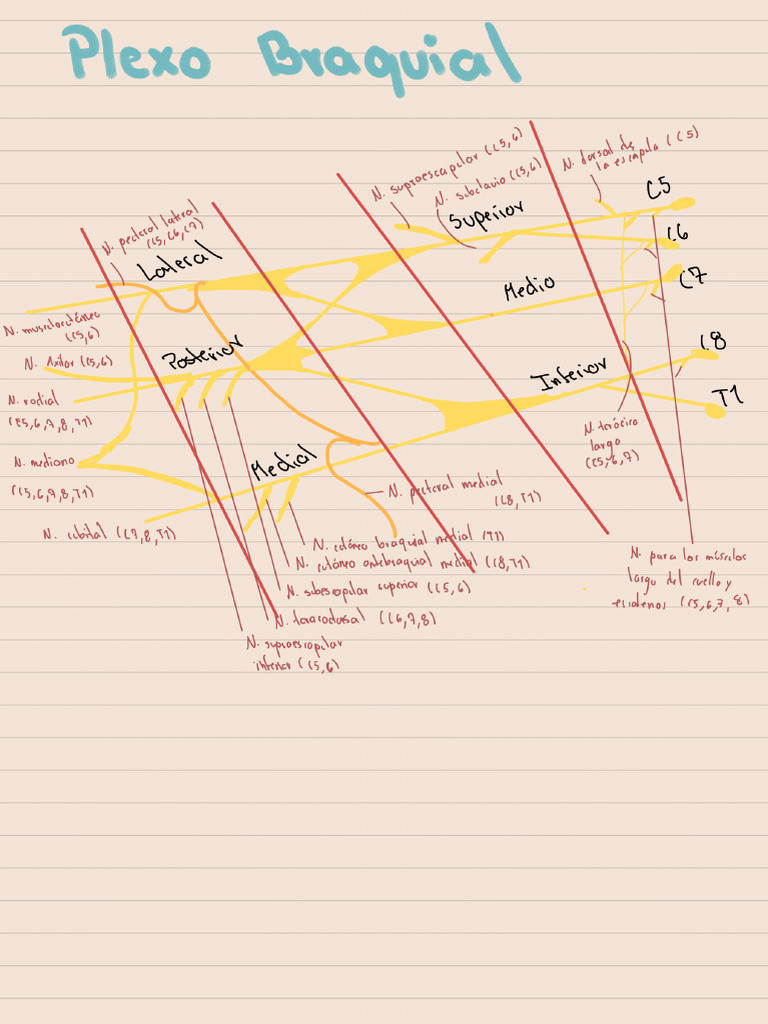 Plexo Braquial
N. dorsal de
la escápula (C5)
N. supraescapular (C5,6)
N. subclavio (C5,6)
C5
Superior
C6
N. pectoral lateral
(C5, C6, C7)
Lateral
C7
Medio
N. musculocutáneo
(C5,6)
C8
N. Axilar (C5,6)
Posterior
Inferior
T1
N. radial
(C5,6,7,8,T1)
N. torácico
largo
(C5,6,7)
N. mediano
Medial
(C5,6,7,8,T1)
N. pectoral medial
(C8,T1)
N. cubital (C7,8,T1)
N. cutáneo braquial medial (T1)
N. cutáneo antebraquial medial (C8,T1)
N. para los músculos
largo del cuello y
escalenos (C5,6,7,8)
N. subescapular superior (C5,6)
N. toracodorsal (C6,7,8)
N. supraescapular
inferior (C5,6)